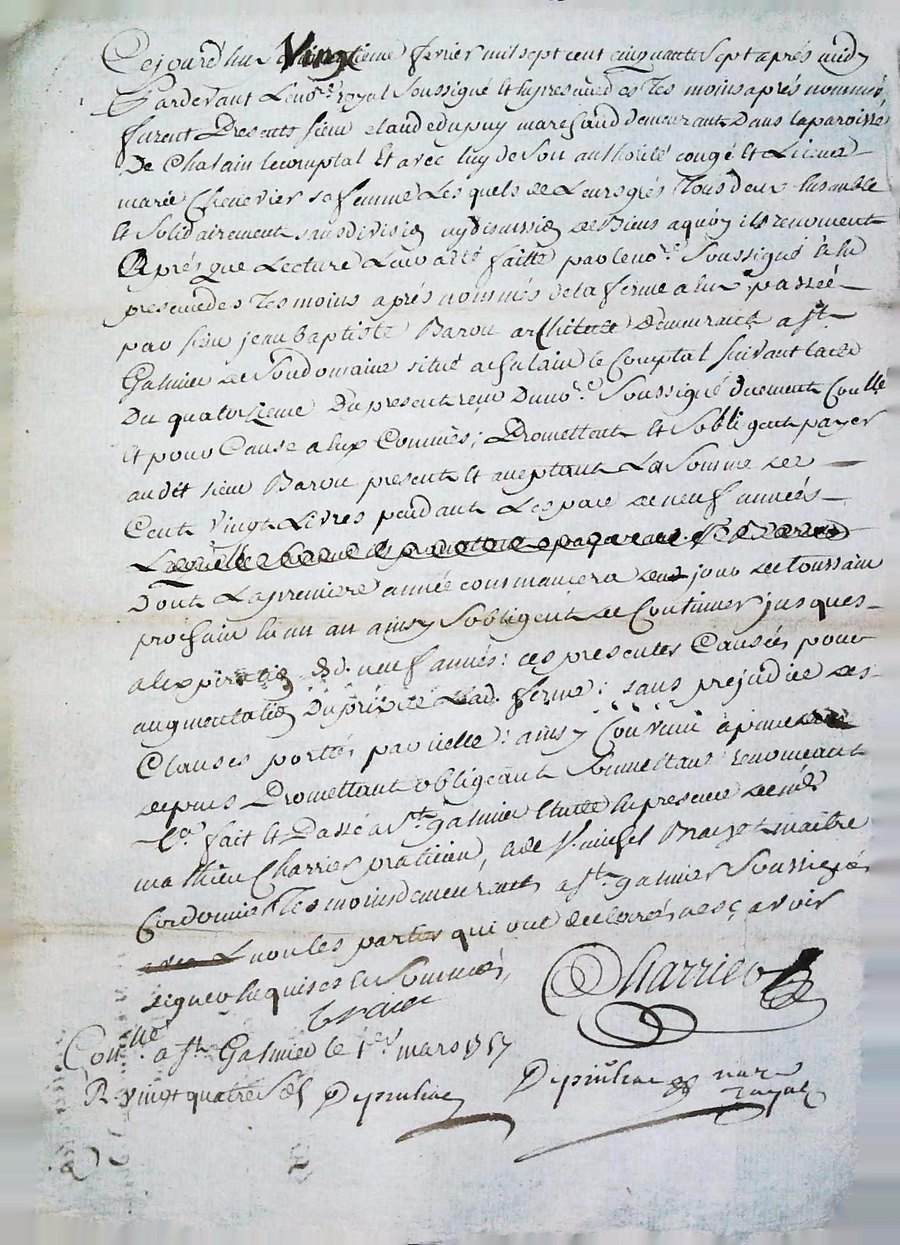 Cejourd'huy Vingtieme fevrier mil sept cent cinquante Sept aprés midy
Pardevant Le no.re royal Soussigné et En presence des Tesmoins aprés nommés
furent Presents sieur Claude dupuy marchand demeurant Dans la paroisse
De Chalain lecomptal Et avec luy de Son authorité congé Et Licence
marie Chenevier sa femme Les quels de Leurs grés Tous deux Ensemble
Et Solidairement sans division ny discussion de Biens a quoy ils renoncent
Aprés que Lecture Leur a eté faitte par le no.re Soussigné à la
presence des Tesmoins aprés nommés de la ferme a luy passée
par sieur jean Baptiste Barou architecte Demeurant a St.
Galmier de Son domaine situé a Chalain le Comptal Suivant lacte
Du quatorzieme Du present reçu Dud no.re Soussigné duement Coullé
Et pour Cause a Eux Connües; Promettent Et Sobligent payer
audit sieur Barou present Et aceptant La Somme de
Cent vingt Livres pendant Lespace de neuf années
Dont La premiere année commancera au jour de Toussain
prochain Et un an ainsy Sobligent de Continuer jusques
a lexpiration desd. neuf années: ces presentes Causées pour
augmentation Du prix de Lad. ferme: sans prejudice des
Clauses portés par icelle: ainsy Convenu à peine
depens Promettant obligeant Soumettant renonceant
&a. fait Et Passé a St. galmier Etude En presence de me
mathieu Charrier praticien, Et de Sr. michel Brazet maitre
Cordonnier Tesmoins demeurants a St. galmier Soussignés
Et non Les parties qui ont declarés ne sçavoir
signer Enquises Et Sommées,
Charrier
Brazet
Con.llé a St. Galmier le 1.er mars 1757
R. vingt quatre sols Depiulhac
Depiulhac
no.re royal